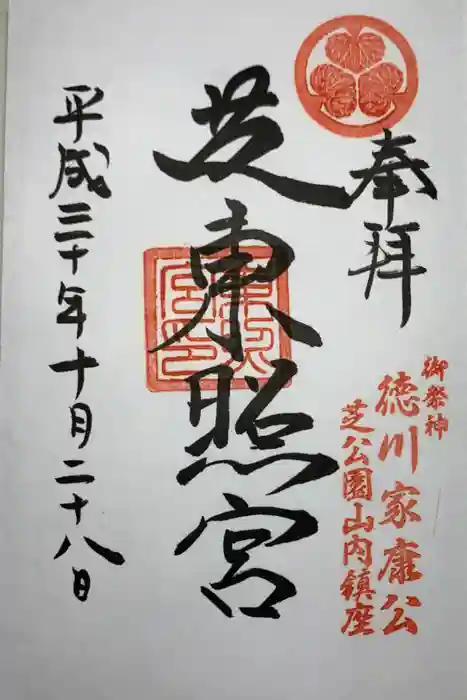 奉拝
御祭神
徳川家康公
芝公園山内鎮座
芝東照宮
平成三十年十月二十八日